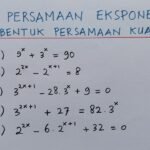 PERSAMAAN EKSPONE
BENTUK PERSAMAAN KUA
) 9ˣ + 3ˣ = 90
) 2²ˣ - 2ˣ⁺¹ = 8
) 3²ˣ⁺¹ - 28.3ˣ + 9 = 0
) 3²ˣ⁺¹ + 27 = 82.3ˣ
) 2²ˣ - 6.2ˣ⁺¹ + 32 = 0